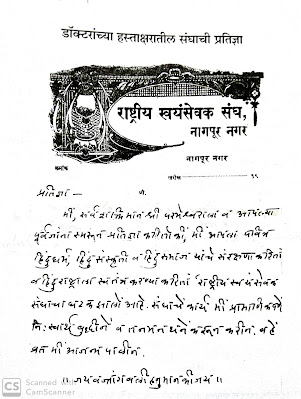 डॉक्टरांच्या हस्ताक्षरातील संघाची प्रतिज्ञा
राष्ट्रीय स्वयंसेवक संघ,
नागपूर नगर
नागपूर नगर
क्रमांक
तारीख १९
प्रतिज्ञा
मी, सर्वशक्तिमान श्री परमेश्वराला व आपल्या
पूर्वजांना स्मरून प्रतिज्ञा करितों कीं, मी आपला पवित्र
हिंदुधर्म, हिंदुसंस्कृती व हिंदुसमाज यांचे संरक्षणा करितां
व हिंदुराष्ट्राला स्वतंत्र करण्या करितां राष्ट्रीय स्वयंसेवक
संघाचा घटक झालों आहे. संघाचें कार्य मी प्रामाणिकपणें
निःस्वार्थ बुद्धीनें व तनमनधनें करून करीन. व हें
व्रत मी आजन्म पाळीन.
॥ जय बजरंग बली हनुमान की जय ॥
CS Scanned with
CamScanner